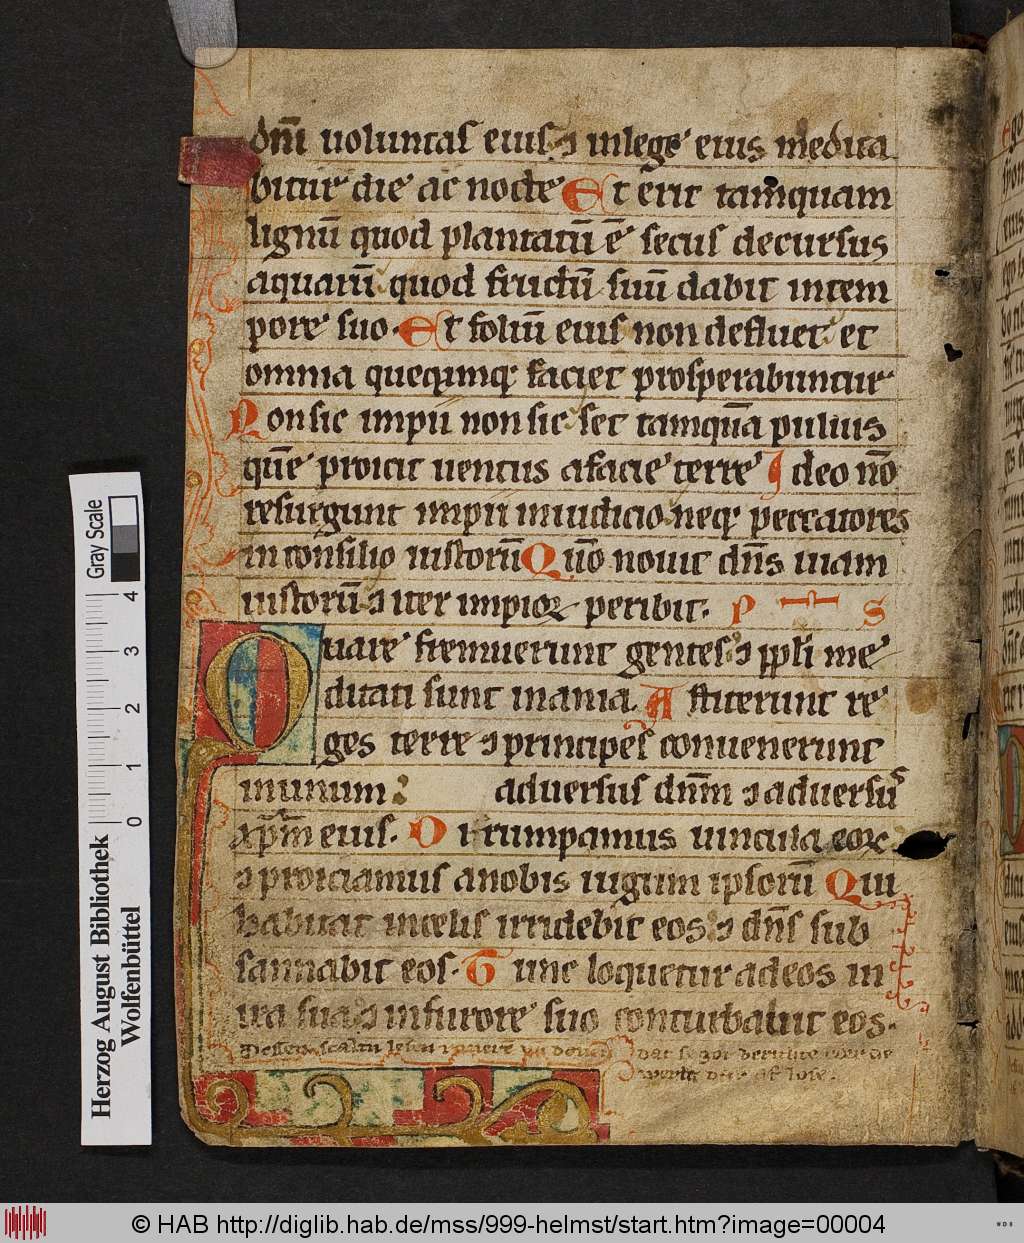 dnī uoluntas eius ⁊ inlege eius medita
bitur die ac nocte Et erit tamquam
lignū quod plantatū ē secus decursus
aquarū quod fructū suū dabit intem
pore suo. Et foliū eius non defluet et
omnia quecūmq; faciet prosperabuntur
Non sic impii non sic set tamquā puluis
quē proicit uentus afacie terre Ideo nō
resurgunt impii iniudicio neq; peccatores
in consilio iustorū Quō nouit dn̄s uiam
iustorū ⁊ iter impioꝝ peribit. P S
Quare fremuerunt gentes ⁊ ppli me
ditati sunt inania. Astiterunt re
ges terre ⁊ principes conuenerunt
inunum aduersus dnm̄ ⁊ aduersus
xp̄m eius. Dirumpamus uincula eoꝝ
⁊ proiciamus anobis iugum ipsorū Qui
habitat incelis irridebit eos ⁊ dn̄s sub
sannabit eos. Tunc loquetur adeos in
ira sua ⁊ infurore suo conturbabit eos.
Gray Scale
0 1 2 3 4
Herzog August Bibliothek
Wolfenbüttel
© HAB http://diglib.hab.de/mss/999-helmst/start.htm?image=00004